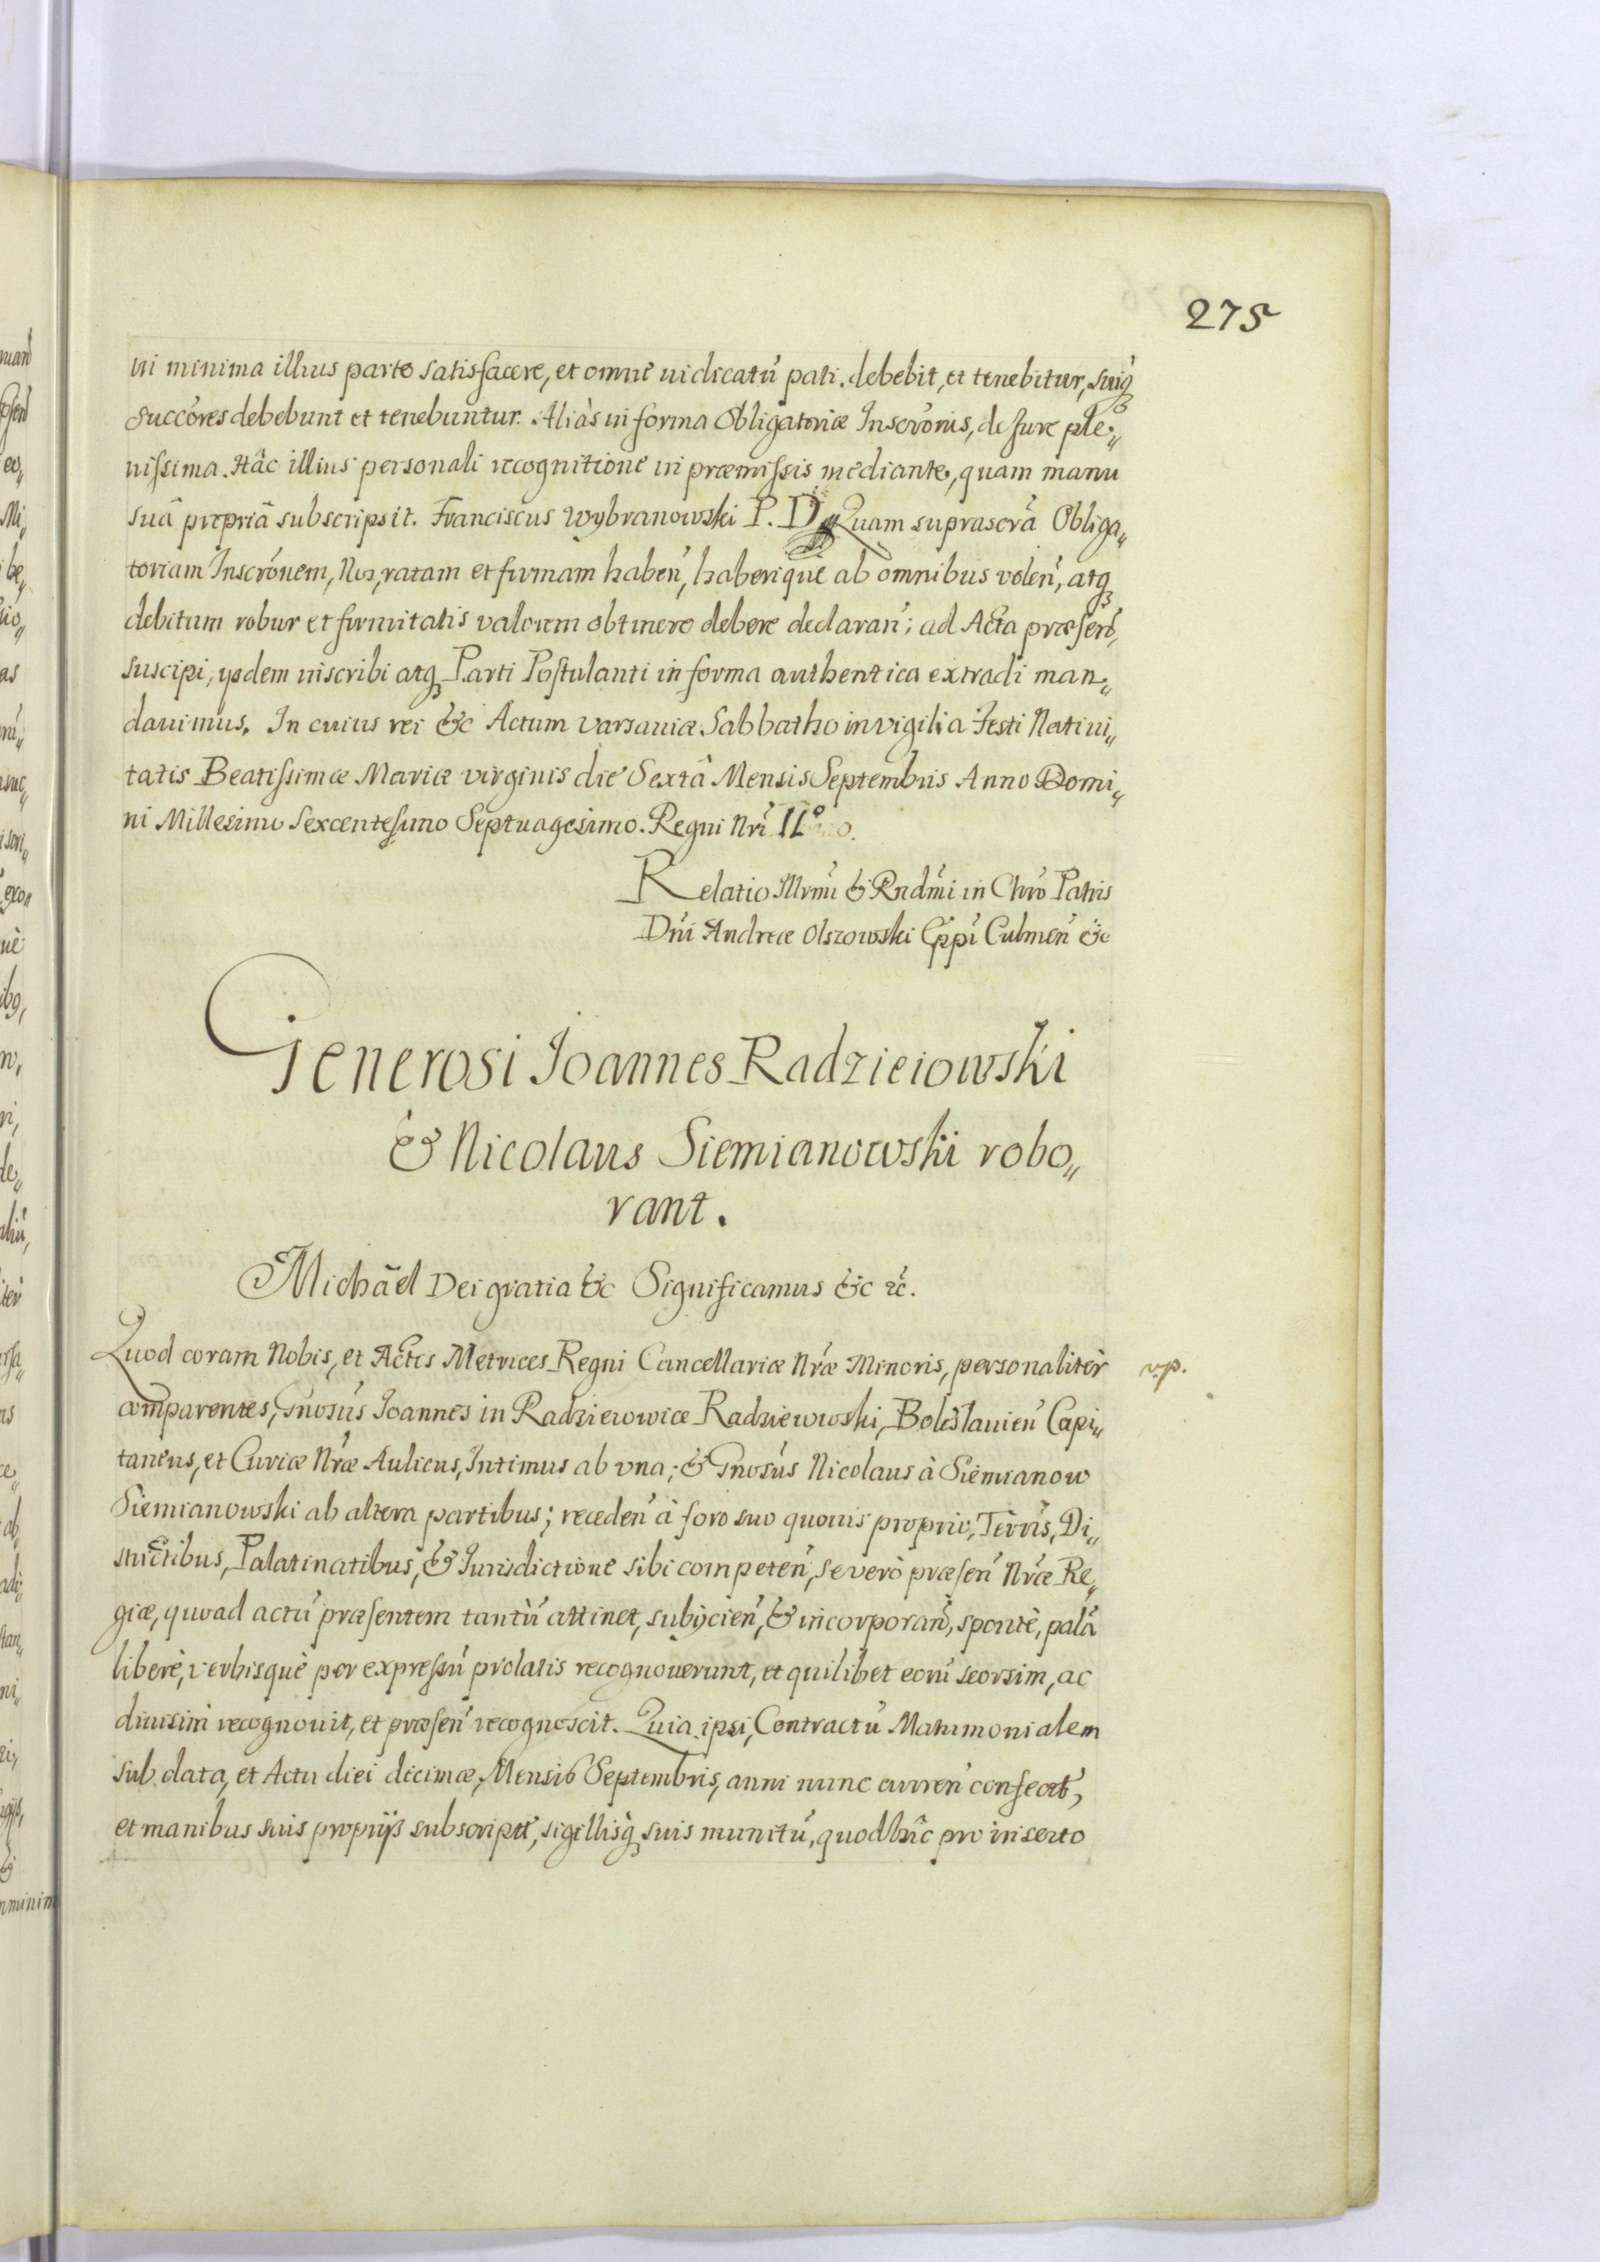 275
in minima illius parte satisfacere, et omnē iudicatū pati debebit, et tenebitur, suiq
succōres debebunt et tenebuntur. Aliàs in forma Obligatoriæ Inscrōnis, de jure ple„
nissima. Hâc illius personali recognitione in præmissis mediante, quam manu
suâ propriâ subscripsit. Franciscus Wybranowski P. D. Quam suprascrā Obliga„
toriam Inscrōnem, Nos, ratam et firmam habeń, haberique ab omnibus voleń, atq
debitum robur et firmitatis valorem obtinere debere declarań; ad Acta præseń,
suscipi, ijsdem inscribi atq Parti Postulanti in forma authentica extradi man„
dauimus. In cuius rei &c Actum Varsauiæ Sabbatho in vigilia Festi Natiui„
tatis Beatissimæ Mariæ virginis die Sextâ Mensis Septembris Anno Domi„
ni Millesimo Sexcentesimo Septuagesimo. Regni Nrī II°
Relatio Illrmi & Rndmi in Chrō Patris
Dńi Andreæ Olszowski Eppi Culmeń &c
Generosi Joannes Radzieiowski
& Nicolaus Siemianowski robo„
rant.
Michāel Dei gratia &c Significamus &c rc.
Quod coram Nobis, et Actis Metrices Regni Cancellariæ Nræ Minoris, personalitèr
v.p.
comparentes, Gnosus Joannes in Radzieiowice Radzieiowski, Boleslauień Capi„
taneus, et Curiæ Nræ Aulicus, Intimus ab vna; & Gnosus Nicolaus à Siemianow
Siemianowski ab altera partibus; recedeń à foro suo quouis proprio, Terris, Di„
strictibus, Palatinatibus, & Jurisdictione sibi competeń, se verò præseń Nræ Re„
giæ, quoad actū præsentem tantū attinet, subijcień, & incorporań, spontè, palā
liberè, verbisquè per expressū prolatis recognouerunt, et quilibet eorū seorsim, ac
diuisim recognouit, et præseń recognoscit. Quia ipsi, Contractū Matrimonialem
sub data, et Actu diei decimæ, Mensis Septembris, anni nunc curreń confect,
et manibus suis proprijs subscriptū, sigillisq suis munitū, quod hic pro inserto